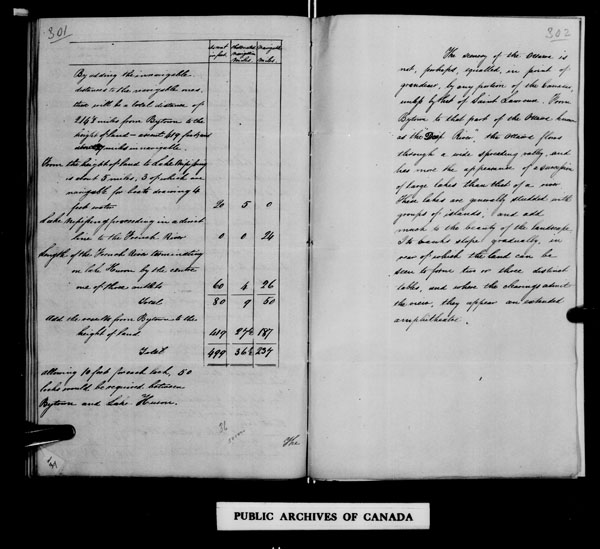 301
ascent in feet | obstructed navigation miles | Navigable miles
By adding the unnavigable
distances to the navigable ones,
there will be a total distance of
214½ miles from Bytown to the
height of land – ascent 419 feet, and
miles unnavigable.
From the height of land to Lake Nipissing
is about 5 miles, 3 of which are
navigable for boats drawing 4
feet water 20 5 0
Lake Nipissing proceeding in a direct
line to the French River 0 0 24
Length of the French River terminating
in Lake Huron by the centre
one of three outlets 60 4 26
Total 80 9 50
Add the results from Bytown to the
height of land 419 27½ 187
Total 499 36½ 237
allowing 10 feet for each lock, 50
locks would be required between
Bytown and Lake Huron.
36
The
302
The scenery of the Ottawa is
not, perhaps, equalled, in point of
grandeur, by any portion of the Canadas,
unless by that of Saint Lawrence. From
Bytown to that part of the Ottawa known
as the "Deep River", the Ottawa flows
through a wide spreading valley, and
has more the appearance of a succession
of large lakes than that of a river
These lakes are generally studded with
groups of islands, and add
much to the beauty of the landscape.
Its banks slope gradually, in
rear of which the land can be
seen to form two or three distinct
tables, and where the clearings admit
the view, they appear an extended
amphitheatre.
PUBLIC ARCHIVES OF CANADA